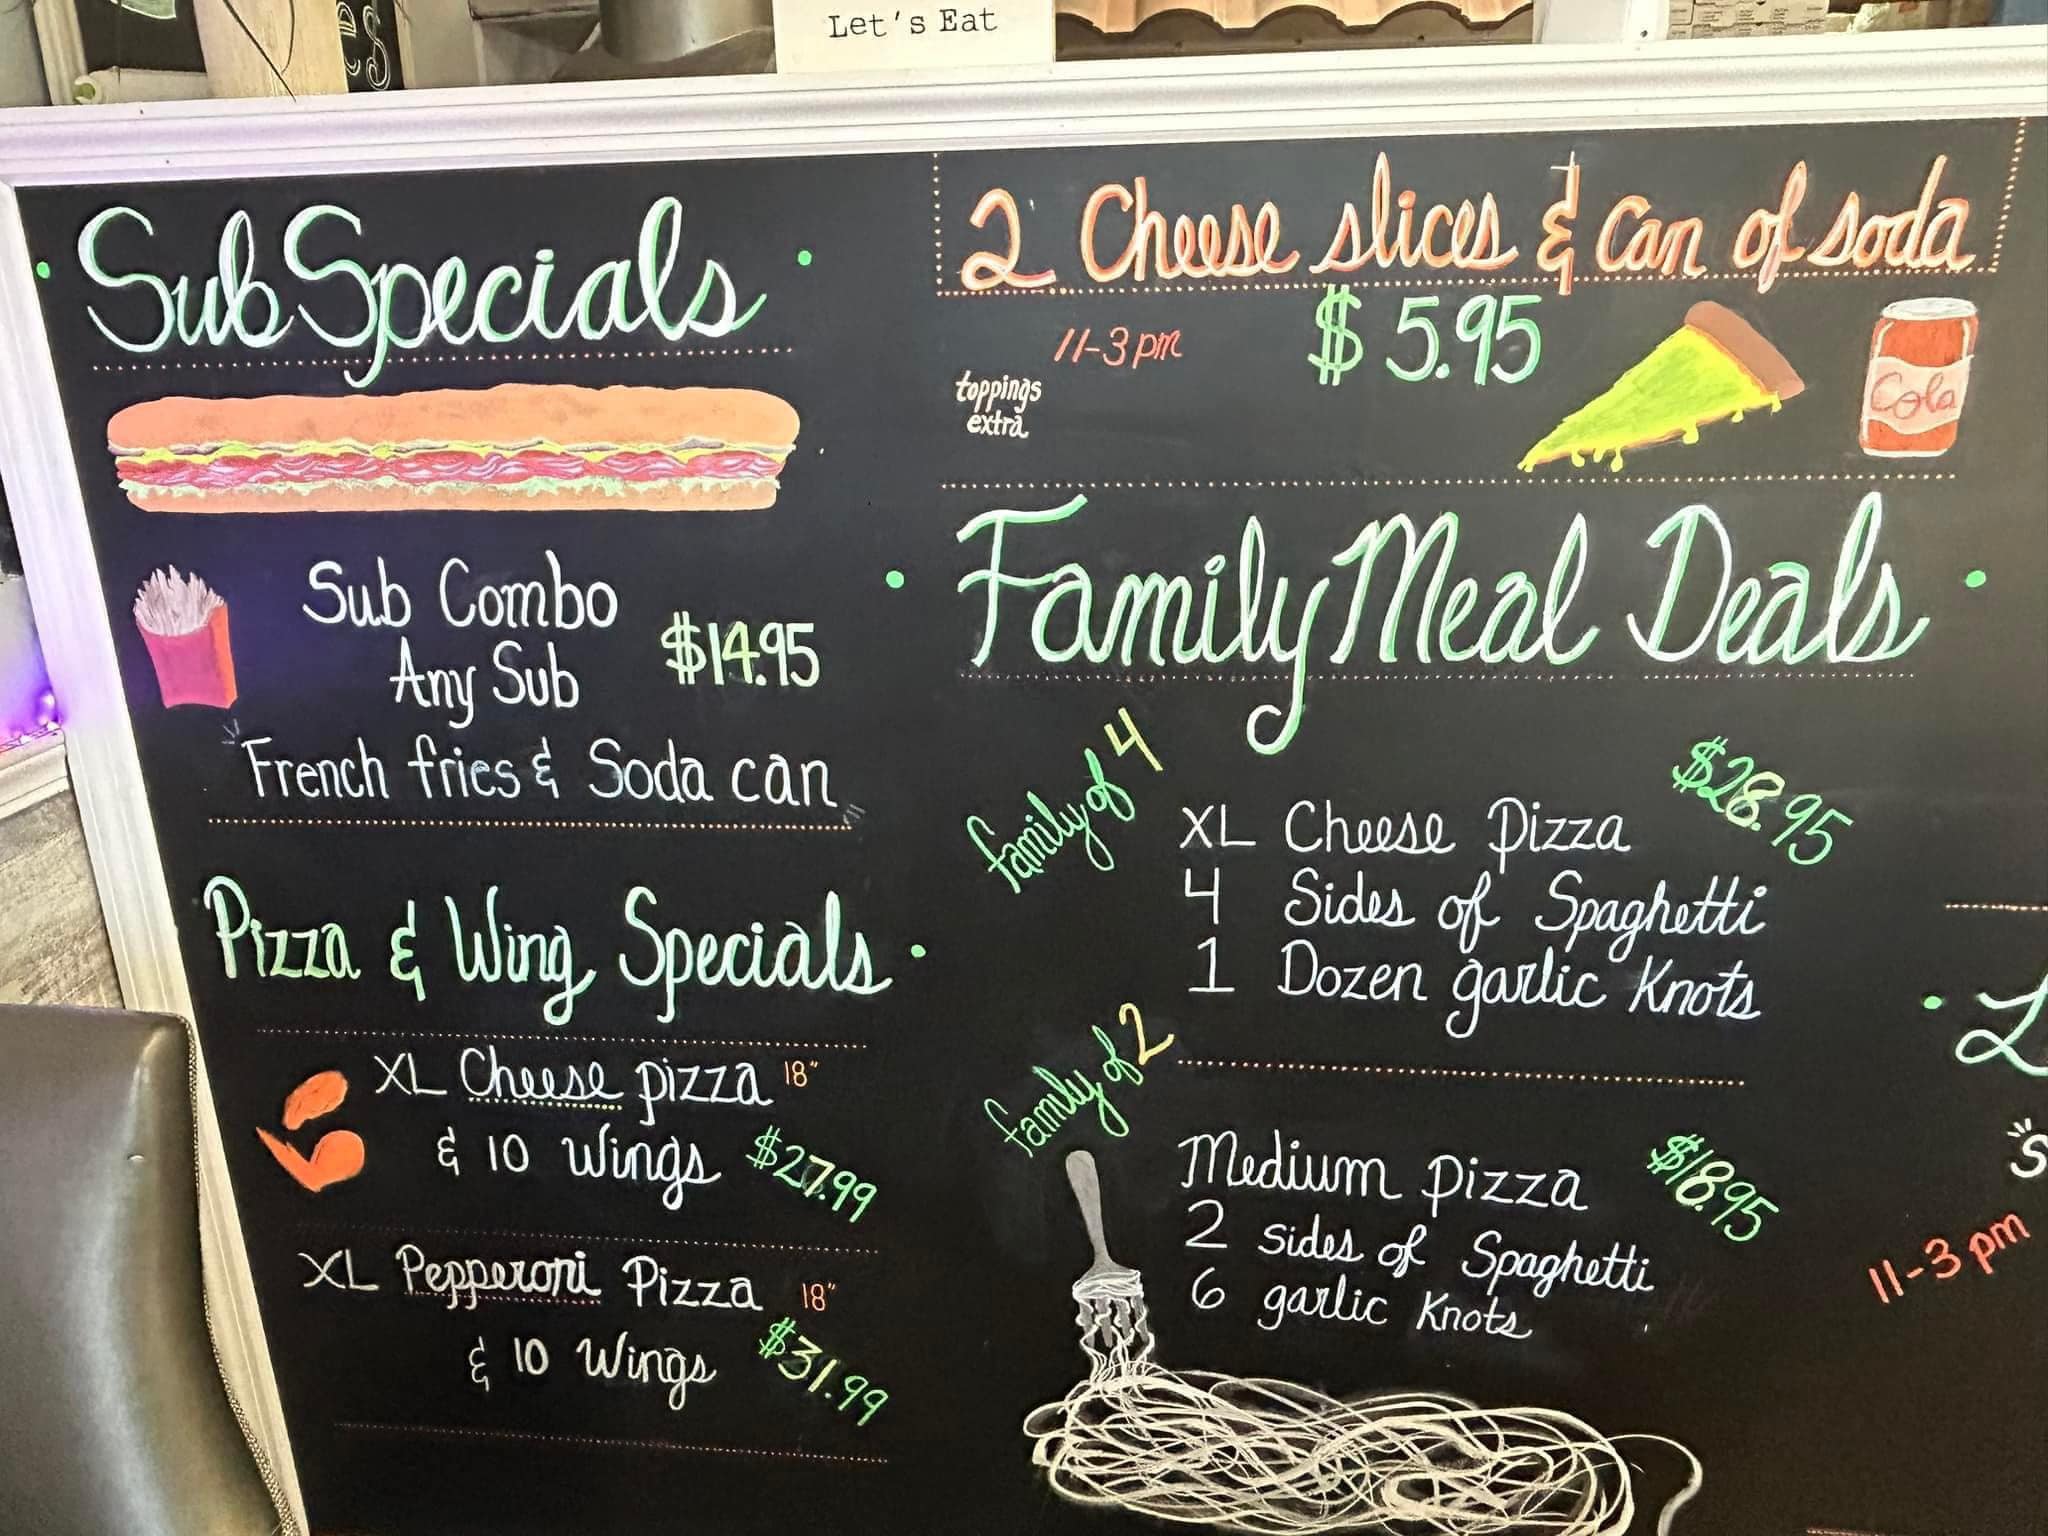 Let's Eat
es
Sub Specials
Sub Combo
Any Sub
$14.95
French fries & Soda can
Pizza & Wing Specials
XL Cheese pizza 18"
& 10 Wings $27.99
XL Pepperoni Pizza 18"
& 10 Wings $31.99
2 Cheese slices & Can of soda
11-3 pm
$5.95
toppings
extra
Cola
Family Meal Deals
family of 4
$28.95
XL Cheese Pizza
4 Sides of Spaghetti
1 Dozen garlic Knots
family of 2
$18.95
Medium Pizza
2 sides of Spaghetti
6 garlic Knots
L
S
11-3 pm